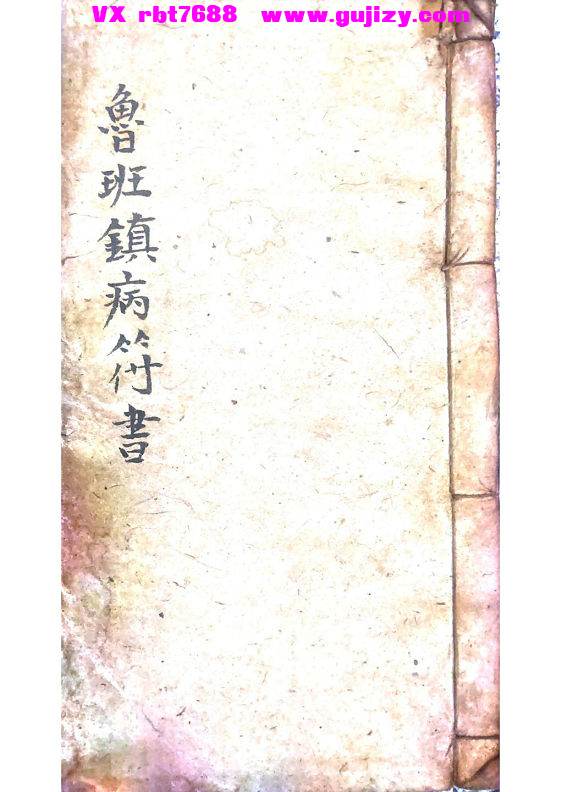 VX rbt7688 www.gujizy.com
魯班鎮病符書